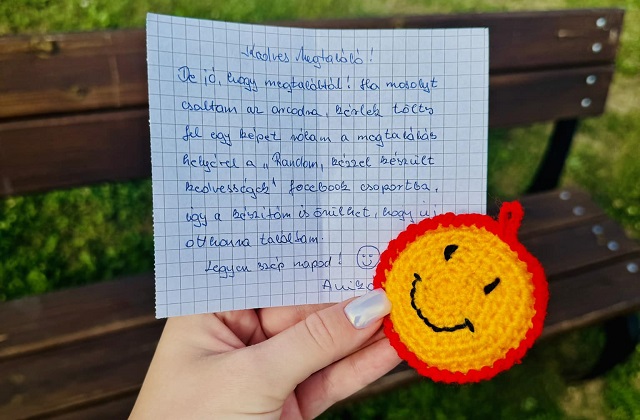 Kedves Megtaláló!
De jó, hogy megtaláltál! Ha mosolyt
csaltam az arcodra, kérlek tölts
fel egy képet rólam a megtalálás
helyéről a „Random, kézzel készült
kedvességek" facebook csoportba,
így a készítőm is örülhet, hogy új
otthonra találtam.
Legyen szép napod!
Anikó